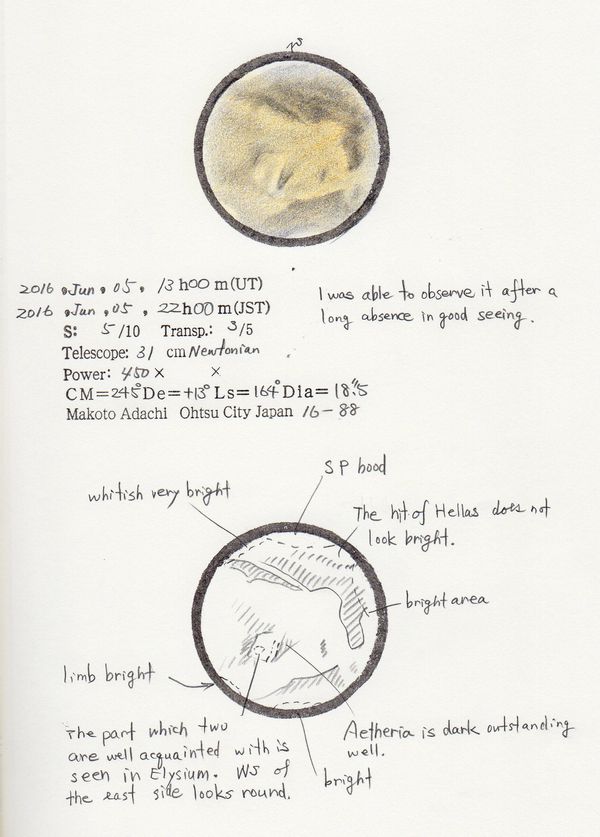 ps
2016 Jun 05, 13 h00 m(UT)
2016 Jun, 05, 22h00 m(JST)
S: 5/10 Transp.: 3/5
Telescope: 31 cm Newtonian
Power: 450 × ×
CM=245° De=+13° Ls=164° Dia=18.″5
Makoto Adachi Ohtsu City Japan 16-88
I was able to observe it after a
long absence in good seeing.
SP hood
whitish very bright
The hit of Hellas does not
look bright.
bright area
limb bright
The part which two
are well acquainted with is
seen in Elysium. WS of
the east side looks round.
Aetheria is dark outstanding
well.
bright